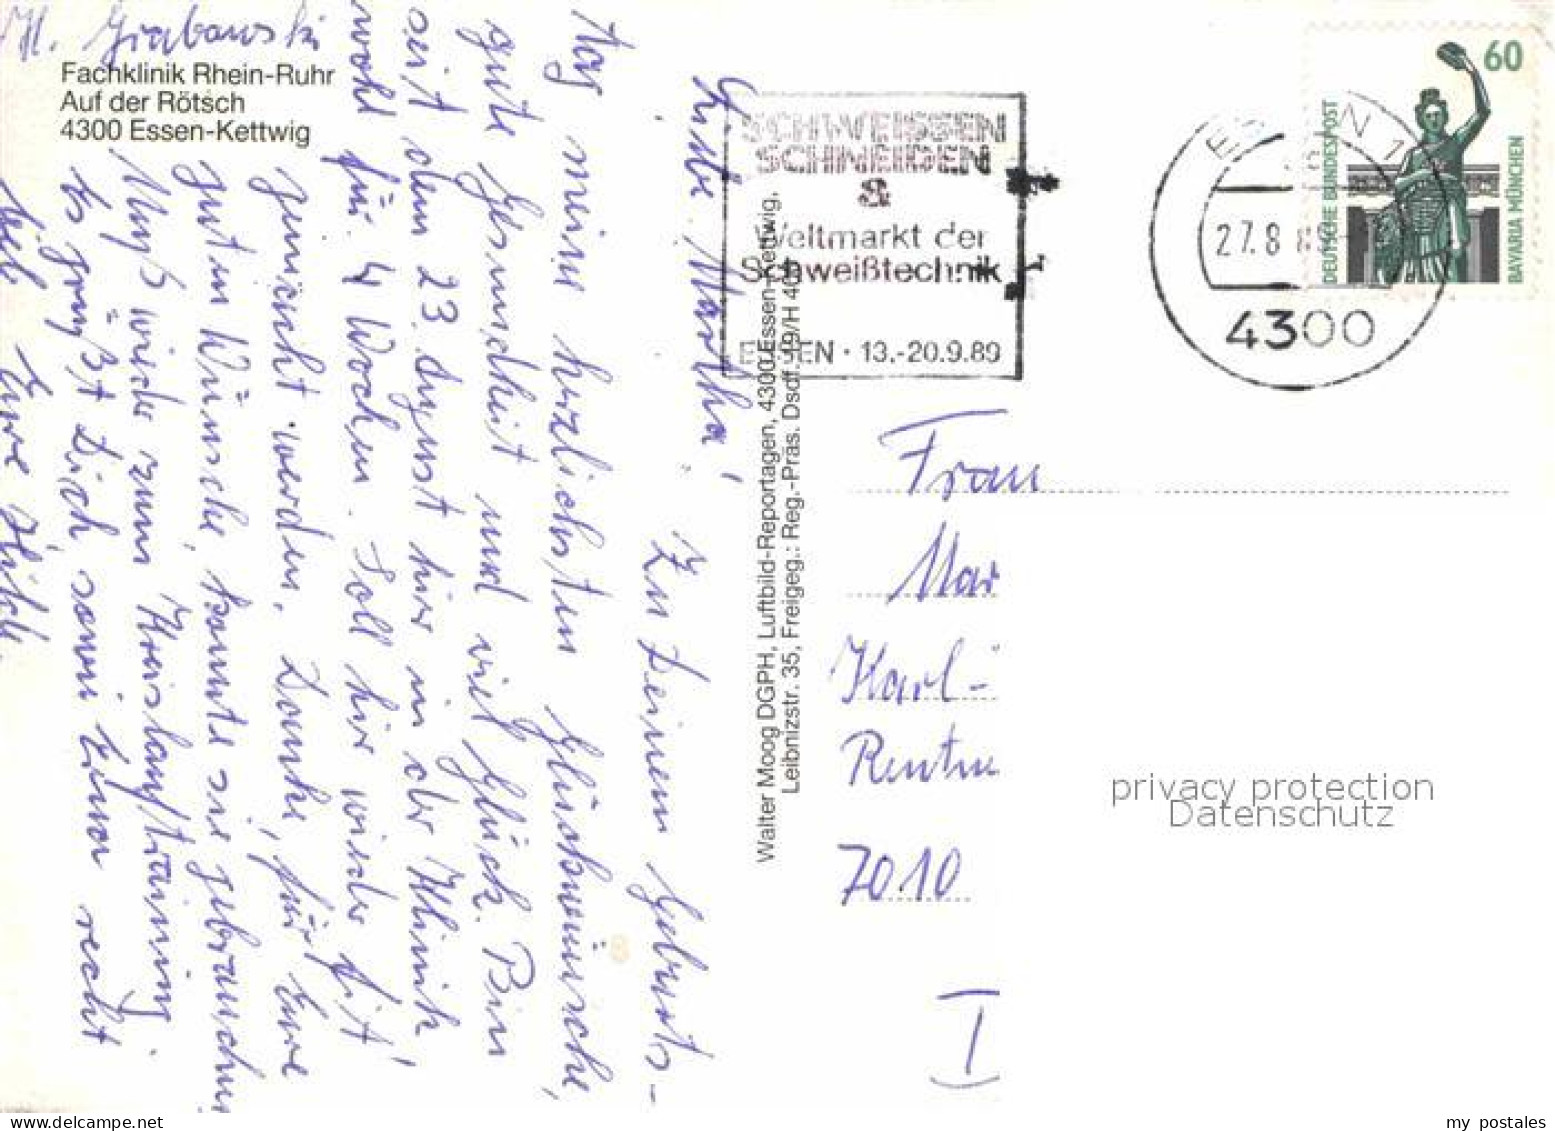 H. Grabowski
Fachklinik Rhein-Ruhr
Auf der Rötsch
4300 Essen-Kettwig
Liebe Martha!
Zu Deinem Geburts-
tag meine herzlichsten Glückwünsche,
gute Gesundheit und viel Glück. Bin
seit dem 23. August hier in der Klinik
wohl für 4 Wochen. Soll hier wieder fit
gemacht werden. Danke, für Eure
guten Wünsche, konnte sie gebrauchen
Muß wieder zum Kreislauftraining.
Es grüßt Dich sowie Edwa recht
lieb Eure
Walter Moog DGPH, Luftbild-Reportagen, 4300 Essen-Kettwig,
Leibnizstr. 35, Freigeg.: Reg.-Präs. Dsdf. 19/H 40
SCHWEISSEN
SCHNEIDEN
&
Weltmarkt der
Schweißtechnik
ESSEN · 13.-20.9.89
ESSEN 1
27.8
4300
60
DEUTSCHE BUNDESPOST
BAVARIA MÜNCHEN
Frau
Mar
Karl-
Rentne
7010
I
privacy protection
Datenschutz
delcampe.net
my_postales